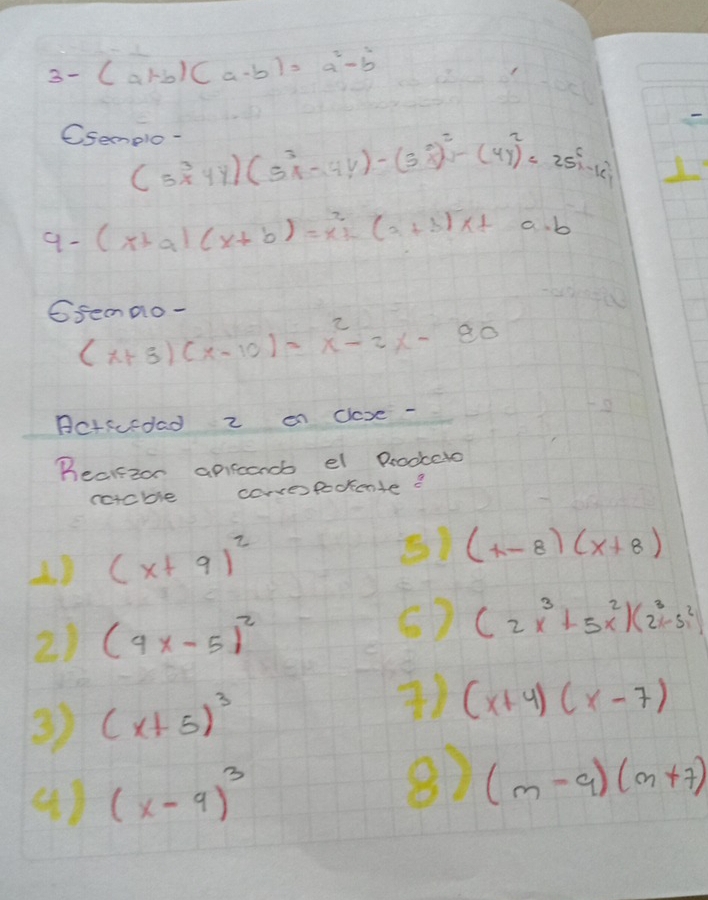 3- (a+b)(a-b)= a²-b²
Esemplo-
(5x³ 4y)(5x³-4y)-(5x³)²-(4y)²= 25x⁶-16y²
4- (x+a)(x+b)=x²+ (a+b)x+ a.b
Esemplo-
(x+8)(x-10)= x²-2x- 80
Actividad 2 en clase-
Realizan aplicando el Producto
notable correspondiente:
1) (x+9)²
2) (9x-5)²
3) (x+5)³
4) (x-9)³
5) (x-8)(x+8)
6) (2x³+5x²)(2x³-5x²)
7) (x+4)(x-7)
8) (m-9)(m+7)